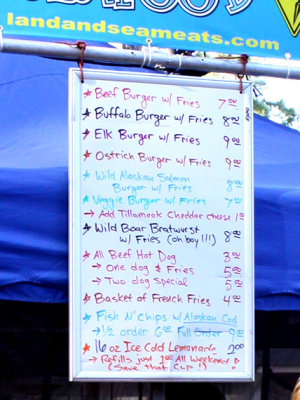 landandseameats.com
★ Beef Burger w/ Fries 7.00
★ Buffalo Burger w/ Fries 8.00
★ Elk Burger w/ Fries 9.00
★ Ostrich Burger w/ Fries 9.00
★ Wild Alaskan Salmon
Burger w/ Fries 8.00
★ Veggie Burger w/ Fries 7.00
→ Add Tillamook Cheddar Cheese 1.00
★ Wild Boar Bratwurst
w/ Fries (oh boy!!!) 8.00
★ All Beef Hot Dog 3.00
→ One dog & Fries 5.00
→ Two dog Special 5.00
★ Basket of French Fries 4.00
★ Fish N' Chips w/ Alaskan Cod
→ ½ order 6.00 Full Order 9.00
★ 16 oz Ice Cold Lemonade 2.00
→ Refills just 1.00 All Weekend!
(Save that Cup!!)